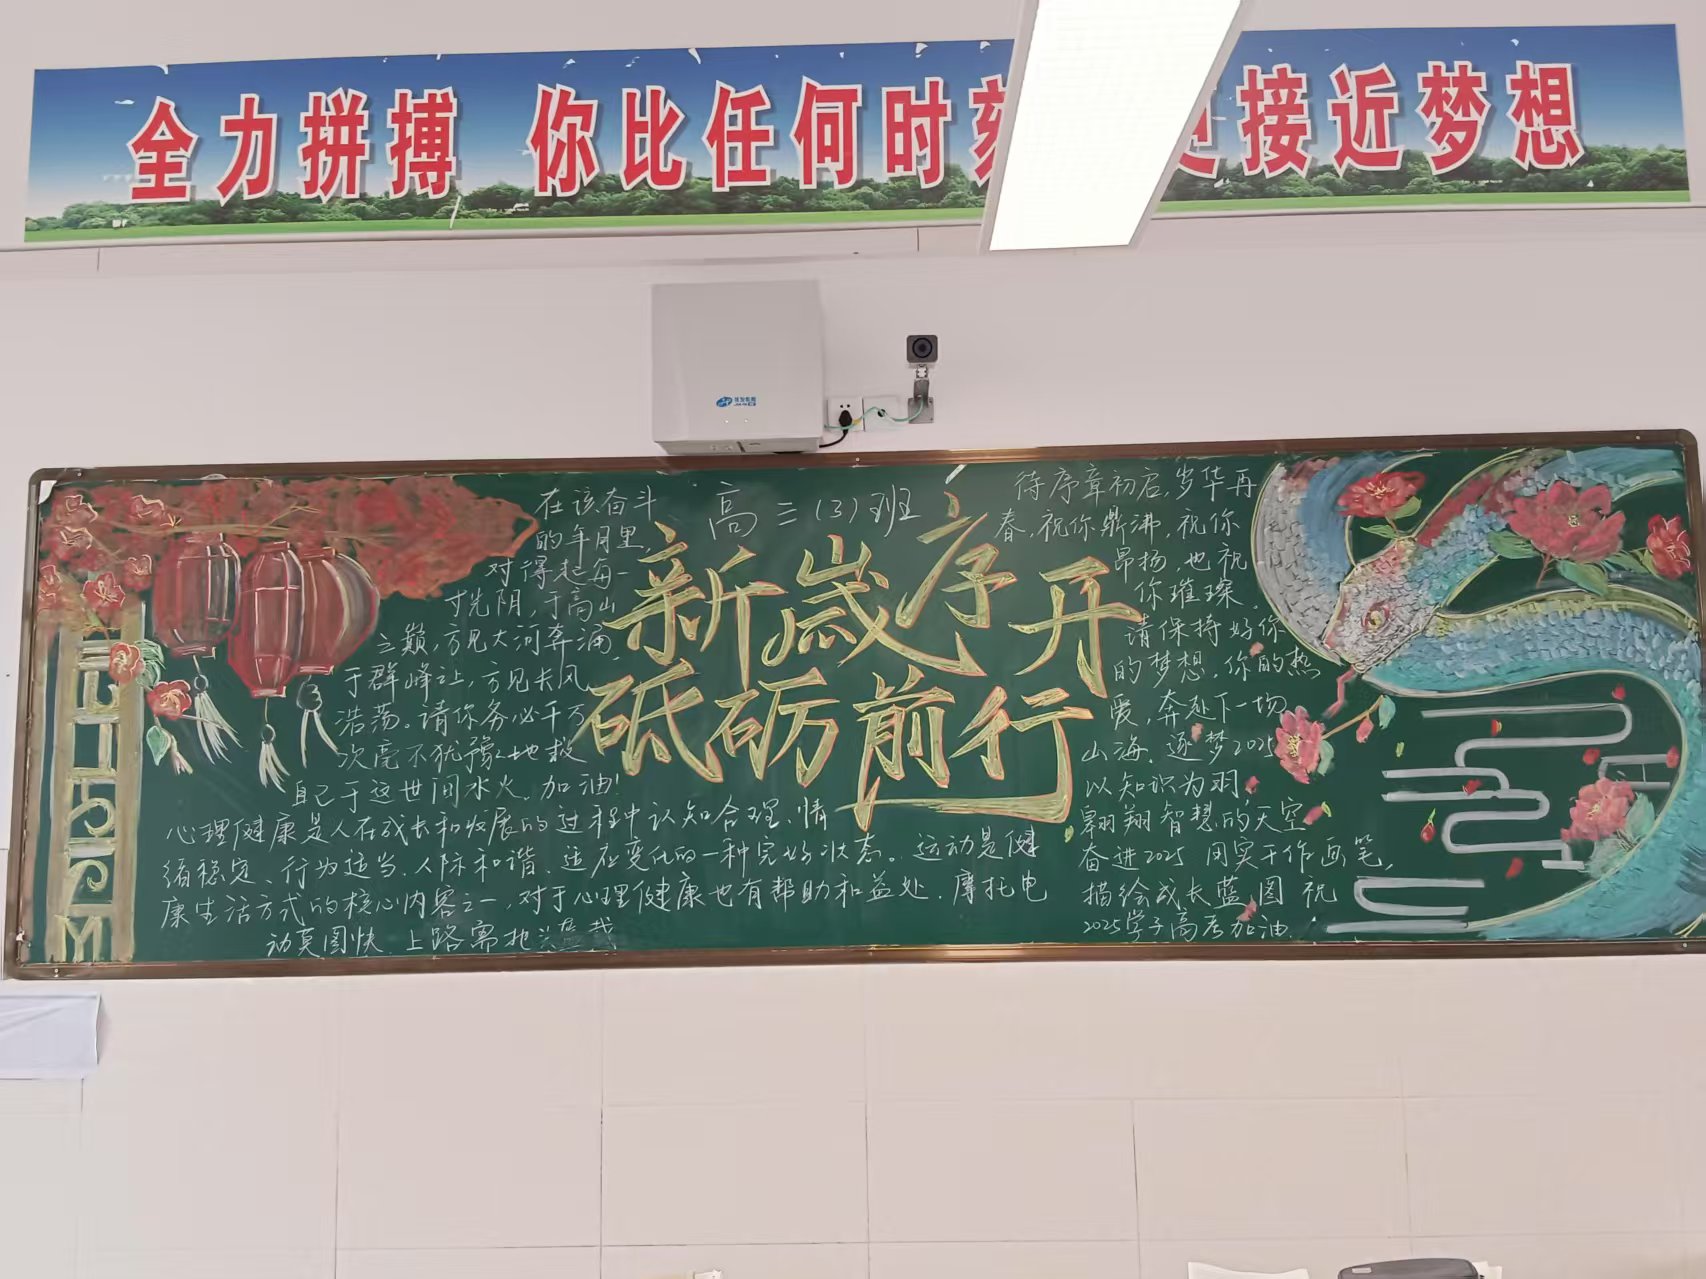 全力拼搏 你比任何时刻 接近梦想
高三(3)班
新岁序开
砥砺前行
在该奋斗
的年月里,
对得起每一
寸光阴,于高山
之巅,方见大河奔涌,
于群峰之上,方见长风
浩荡。请你务必千万
次毫不犹豫地救
自己于这世间水火。加油!
心理健康是人在成长和发展的过程中认知合理、情
绪稳定、行为适当、人际和谐、适应变化的一种完好状态。运动是健
康生活方式的核心内容之一,对于心理健康也有帮助和益处。摩托电
动莫图快 上路需把头盔戴
待序章初启,岁华再
春,祝你鼎沸,祝你
昂扬,也祝
你璀璨。
请保持好你
的梦想,你的热
爱,奔赴下一场
山海。逐梦2025
以知识为羽,
翱翔智慧的天空
奋进2025 用实干作画笔,
描绘成长蓝图 祝
2025学子高考加油.